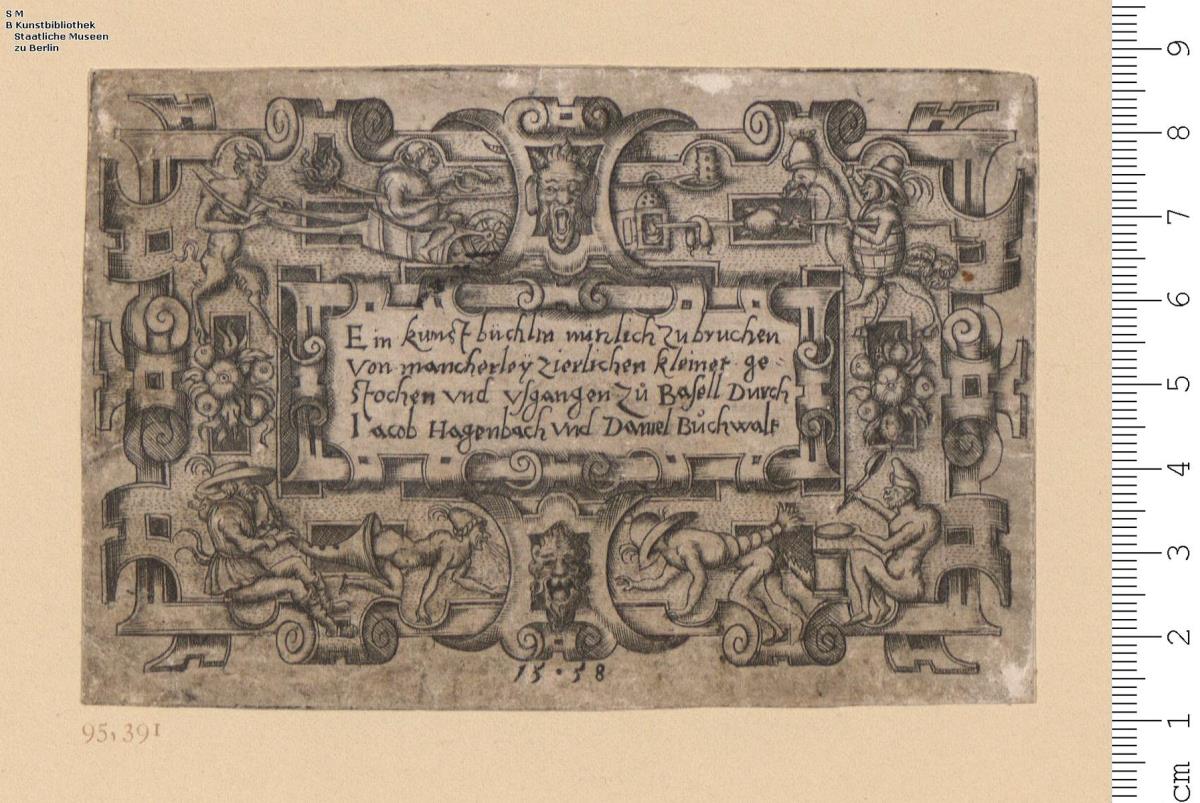 S M
B Kunstbibliothek
Staatliche Museen
zu Berlin
Ein kunstbüchlin nutzlich zu bruchen
von mancherleÿ zierlichen kleinet ge-
stochen vnd vsgangen zů Basell Durch
Iacob Hagenbach vnd Daniel Bůchwalt
15·58
95,391
9
8
7
6
5
4
3
2
1
cm